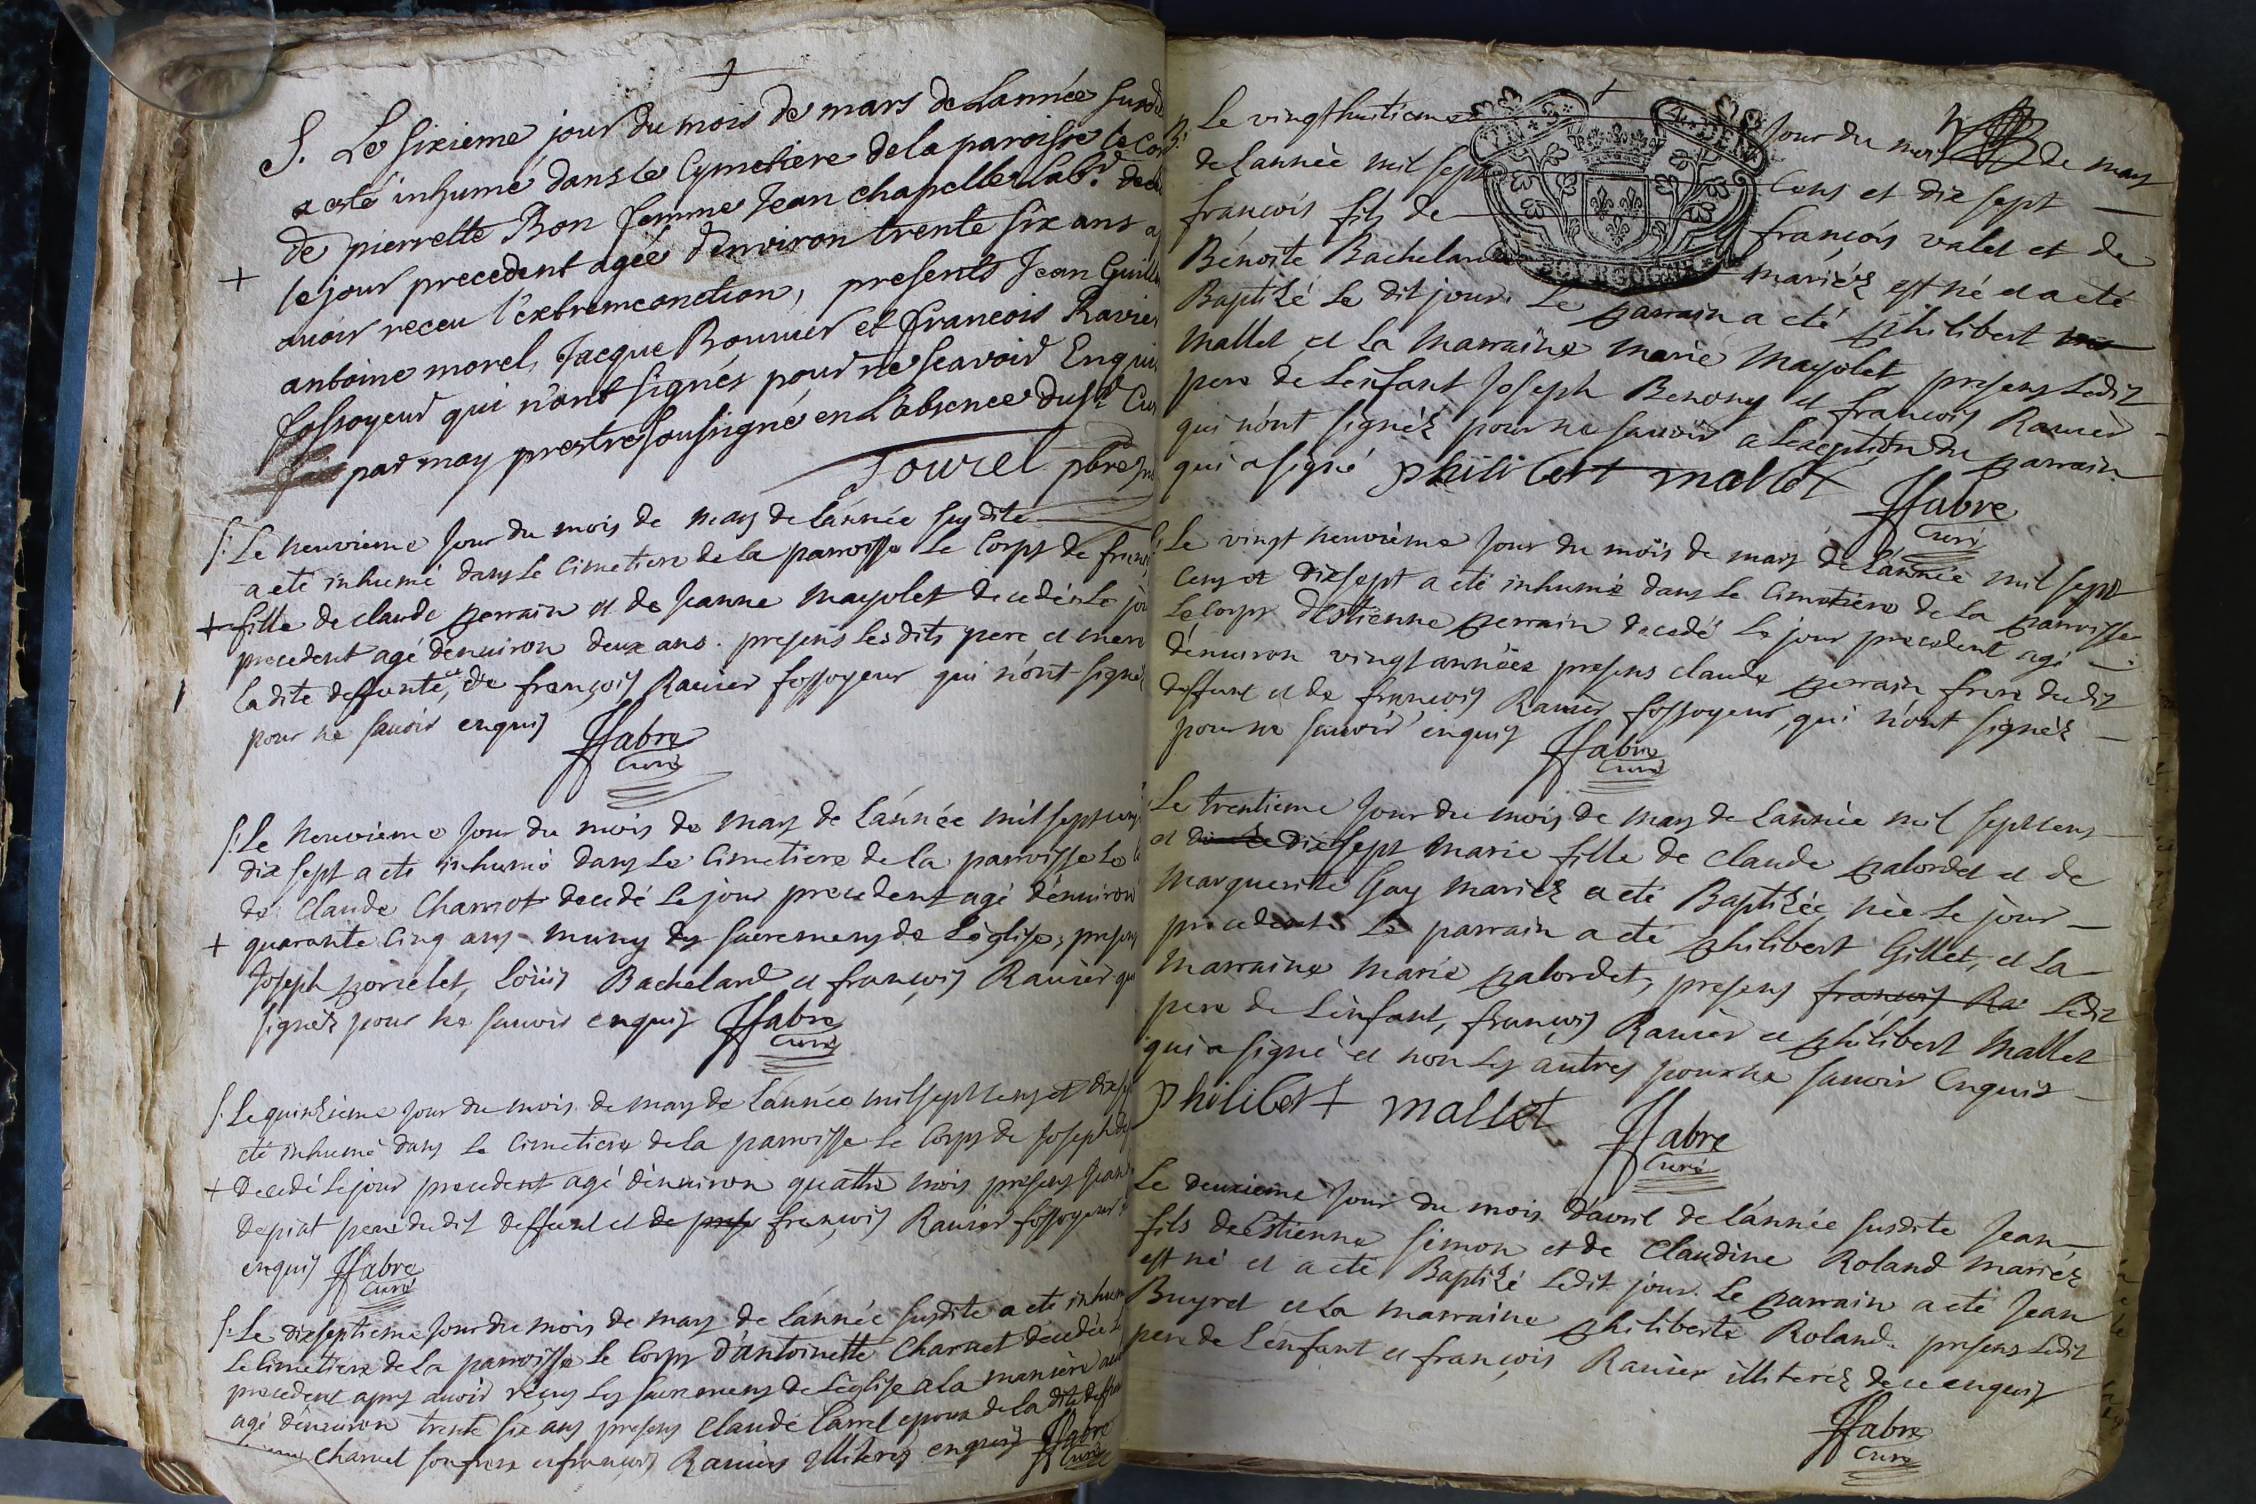 S. Le sixieme jour du mois de mars de Lannée susd
a esté inhumé dans le Cymetiere de la paroisse le Cor
de pierrette Bon femme Jean chapelle Labr. deced
+ le jour precedent agée d'environ trente six ans a
avoir receu l'extremeonction, presents Jean Guill
antoine morel, Jacque Bounier et francois Ravier
fossoyeur qui n'ont signés pour ne scavoir Enquis
par moy prestre soussigné en L'absence du Sr Cur
Tourel pbre
S. Le neuvieme Jour du mois de mars de L'année susdite
a eté inhumé dans Le Cimetiere de la parroisse Le Corps de franc
+ fille de claude perrain et de Jeanne Mayolet decedée Le jo
precedent agé d'environ deux ans. presens lesdits pere et mere
Ladite deffunte, et de françois Ravier fossoyeur qui n'ont signé
pour ne savoir enquis
JJfabre
Curé
S. Le neuvieme Jour du mois de mars de L'année mil sept cens
dix sept a eté inhumé dans Le Cimetiere de la parroisse Le
de Claude Charnot decedé Le jour precedent agé d'environ
+ quarante cinq ans muny des sacremens de L'église, presens
Joseph porcelet, Loüis Bachelard et françois Ravier qui
signés pour ne savoir enquis JJfabre
Curé
S. Le quinzieme jour du mois de mars de L'année mil sept cens et dix se
eté inhumé dans Le Cimetiere de la parroisse Le Corps de Joseph de
+ decedé Le jour precedent agé d'environ quattre mois presens Jean
Depiat pere dudit deffunt et de françois Ravier fossoyeur
enquis JJfabre
Curé
S. Le dixseptieme Jour du mois de mars de L'année susdite a eté inhum
Le Cimetiere de La parroisse Le Corps d'antoinette Charnet decedée
precedent apres avoir reçus Les sacremens de L'église a la maniere
agé d'environ trente six ans presens Claude Carrel epoux de la dite deffun
Charnet son frere et françois Ravier illiterés enquis JJfabre
Curé
Le vingthuitieme Jour du mois de mars
de Lannèe mil sept Cens et dix sept
françois fils de françois valet et de
Bénoîte Bachelard mariéz est né et a eté
Baptizé Le dit jour. Le parrain a eté philibert
Mallet et La Marraine Marie Mayolet, presens Ledit
pere de L'enfant Joseph Benony et françois Ravier
qui n'ont signéz pour ne savoir a L'exception du parrain
qui a signé philibert mallet
JJfabre
Curé
Le vingt neuvième Jour du moîs de mars de L'année mil sept
Cens et dixsept a eté inhumé dans Le Cimetiere de La parroisse
Le Corps d'Estienne perrain decedé Le jour precedent agé
d'environ vingt années presens claude perrain frere dudit
deffunt et de françois Ravier fossoyeur, qui n'ont signés
pour ne savoir enquis JJfabre
Curé
Le trentieme Jour du mois de mars de Lannèe mil sept cens
et dixsept Marie fille de Claude palordet et de
Marguerite Gay mariéz a eté Baptizée, née Le jour
precedent Le parrain a eté philibert Gillet, et La
Marraine Marie palordet, presens françois Ra Ledit
pere de L'enfant, françois Ravier et philibert Mallet
qui a signé et non Les autres pour ne savoir Enquis
philibert mallet
JJfabre
Curé
Le deuxieme Jour du mois d'avril de L'année susdite Jean
fils de Estienne simon et de Claudine Roland mariéz
est né et a eté Baptizé Ledit jour. Le parrain a eté Jean
Buyret et La marraine philiberte Roland. presens Ledit
pere de L'enfant et françois Ravier illiteréz de ce enquis
JJfabre
Curé